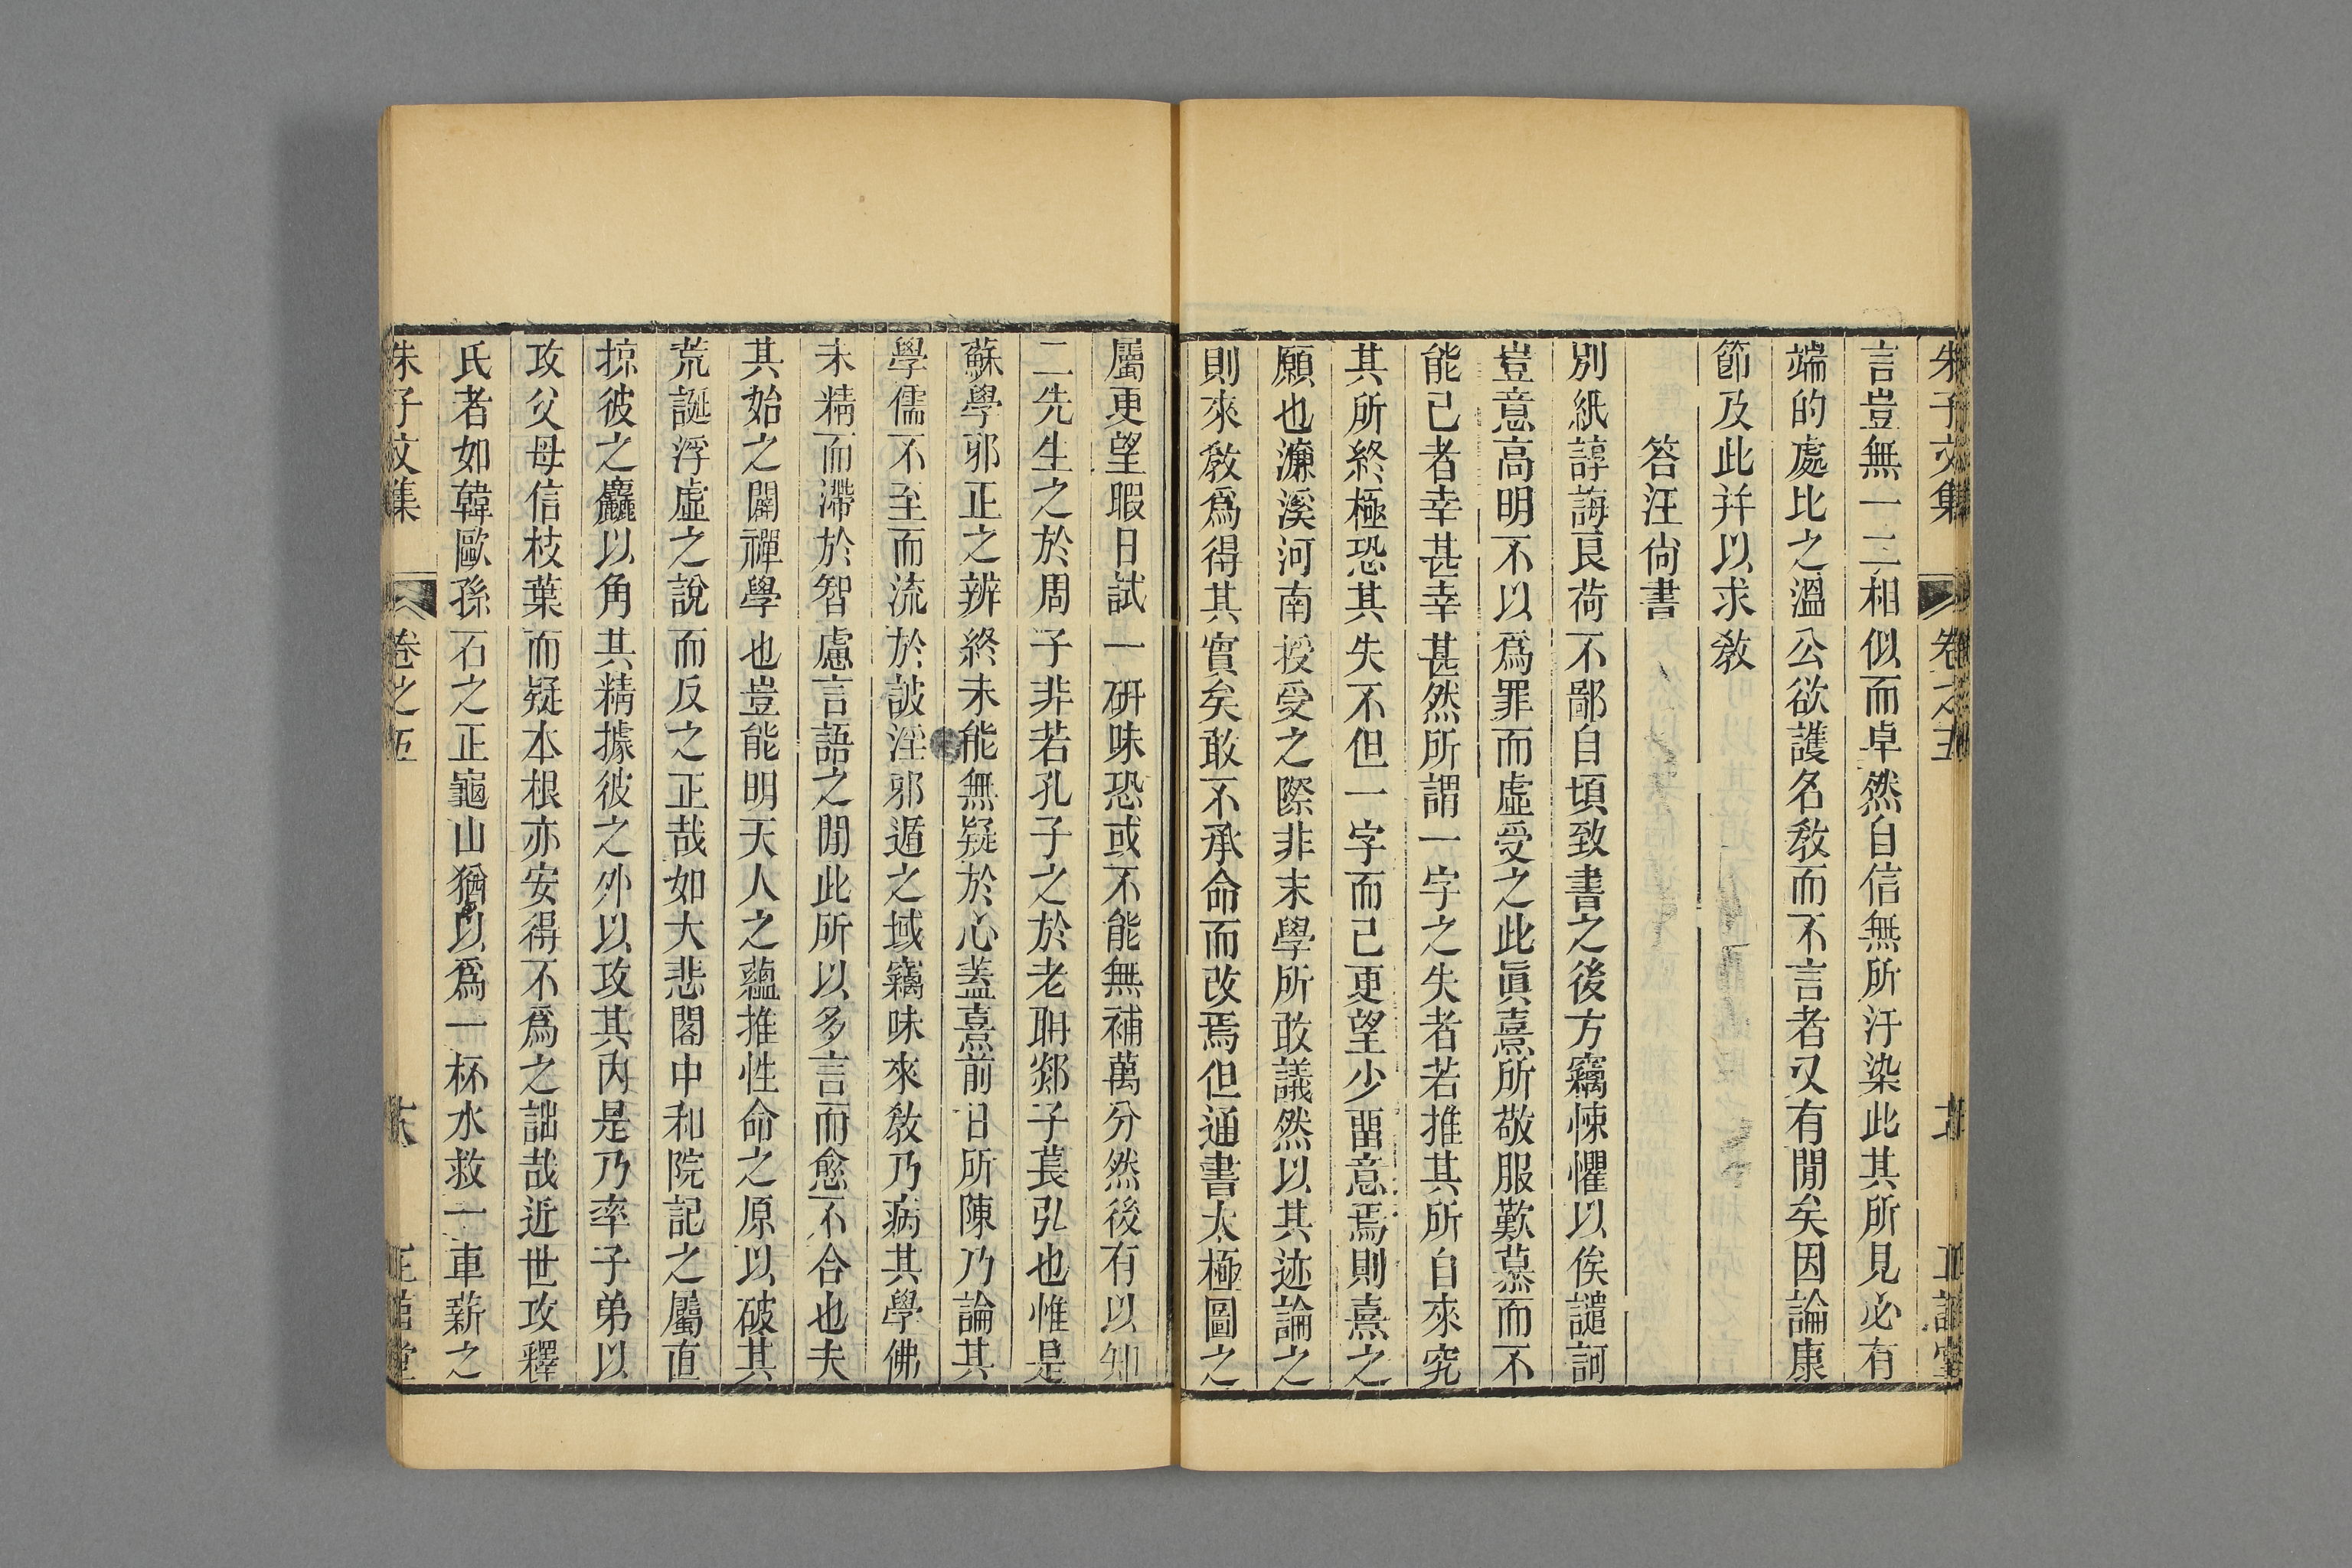 朱子文集 卷之五
言豈無一二相似而卓然自信無所汙染此其所見必有
端的處比之溫公欲護名敎而不言者又有閒矣因論康
節及此并以求敎
答汪尙書
別紙諄誨良荷不鄙自頃致書之後方竊悚懼以俟譴訶
豈意高明不以爲罪而虛受之此眞熹所敬服歎慕而不
能已者幸甚幸甚然所謂一字之失者若推其所自來究
其所終極恐其失不但一字而已更望少畱意焉則熹之
願也濂溪河南授受之際非末學所敢議然以其迹論之
則來敎爲得其實矣敢不承命而改焉但通書太極圖之
屬更望暇日試一硏味恐或不能無補萬分然後有以知
二先生之於周子非若孔子之於老耼郯子萇弘也惟是
蘇學邪正之辨終未能無疑於心蓋熹前日所陳乃論其
學儒不至而流於詖淫邪遁之域竊味來敎乃病其學佛
未精而滯於智慮言語之閒此所以多言而愈不合也夫
其始之闢禪學也豈能明天人之蘊推性命之原以破其
荒誕浮虛之說而反之正哉如大悲閣中和院記之屬直
掠彼之麤以角其精據彼之外以攻其內是乃率子弟以
攻父母信枝葉而疑本根亦安得不爲之詘哉近世攻釋
氏者如韓歐孫石之正龜山猶以爲一杯水救一車薪之
朱子文集 卷之五 正誼堂